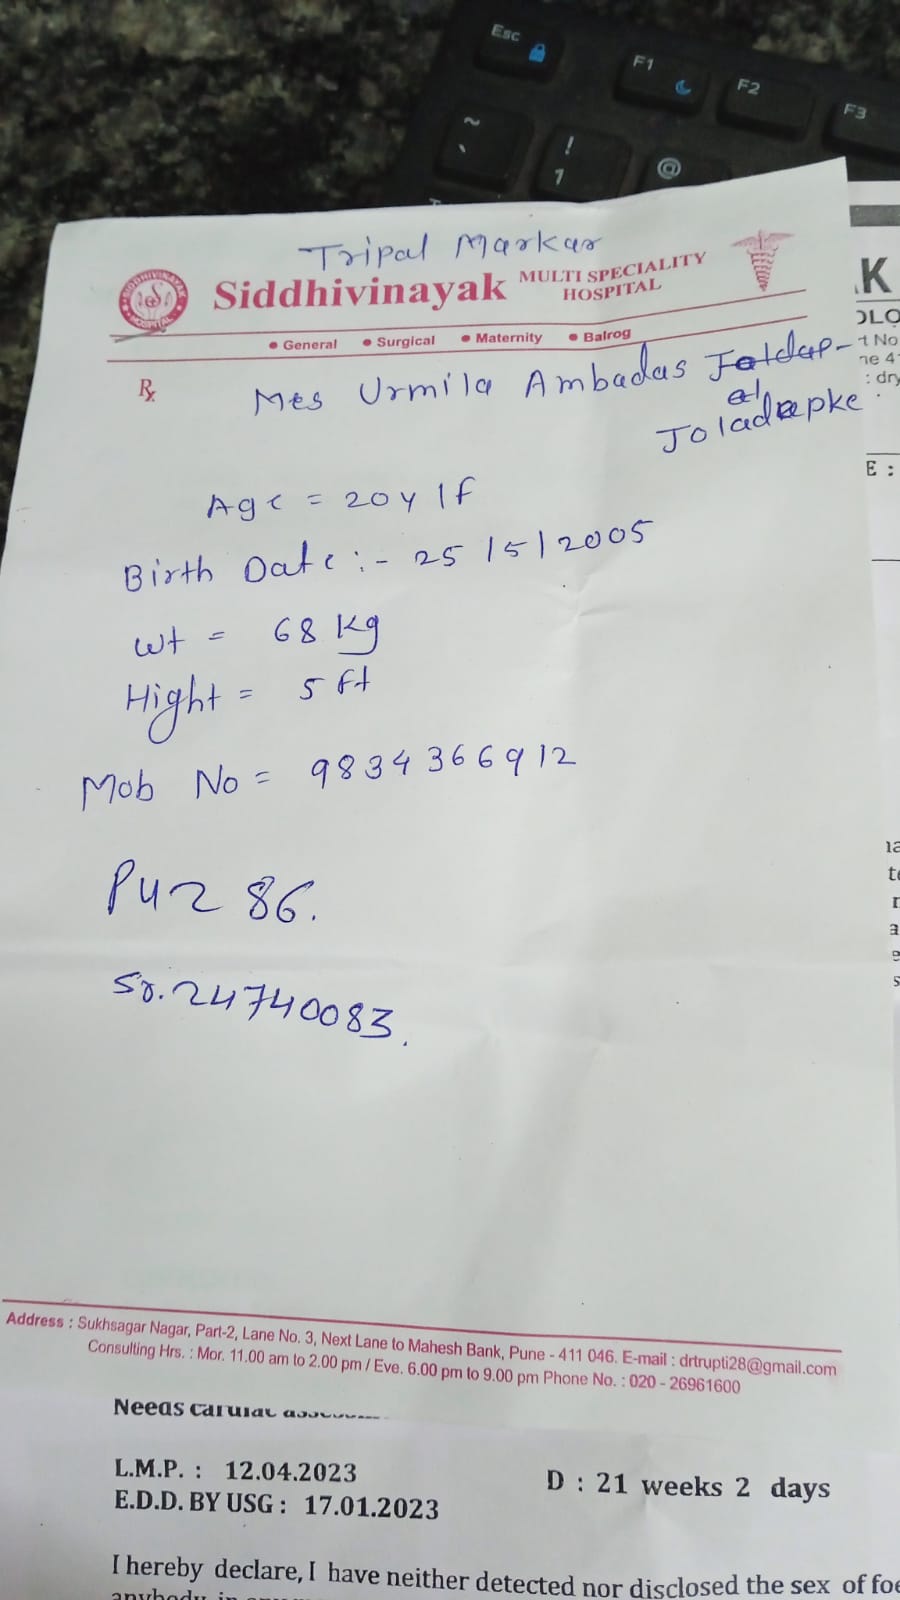 Esc
F1
F2
F3
~
!
1
@
Tripal Markar
Siddhivinayak MULTI SPECIALITY HOSPITAL
• General • Surgical • Maternity • Balrog
Rx
Mrs Urmila Ambadas
Joladapke
Age = 20y/f
Birth Date :- 25/5/2005
Wt = 68 kg
Hight = 5 ft
Mob No = 9834366912
PU2 86.
Sr. 24740083.
K
OLO
t No
ne 4
: dry
E :
Address : Sukhsagar Nagar, Part-2, Lane No. 3, Next Lane to Mahesh Bank, Pune - 411 046. E-mail : drtrupti28@gmail.com
Consulting Hrs. : Mor. 11.00 am to 2.00 pm / Eve. 6.00 pm to 9.00 pm Phone No. : 020 - 26961600
Needs cardiac
L.M.P. : 12.04.2023 D : 21 weeks 2 days
E.D.D. BY USG : 17.01.2023
I hereby declare, I have neither detected nor disclosed the sex of foe
anybody in any